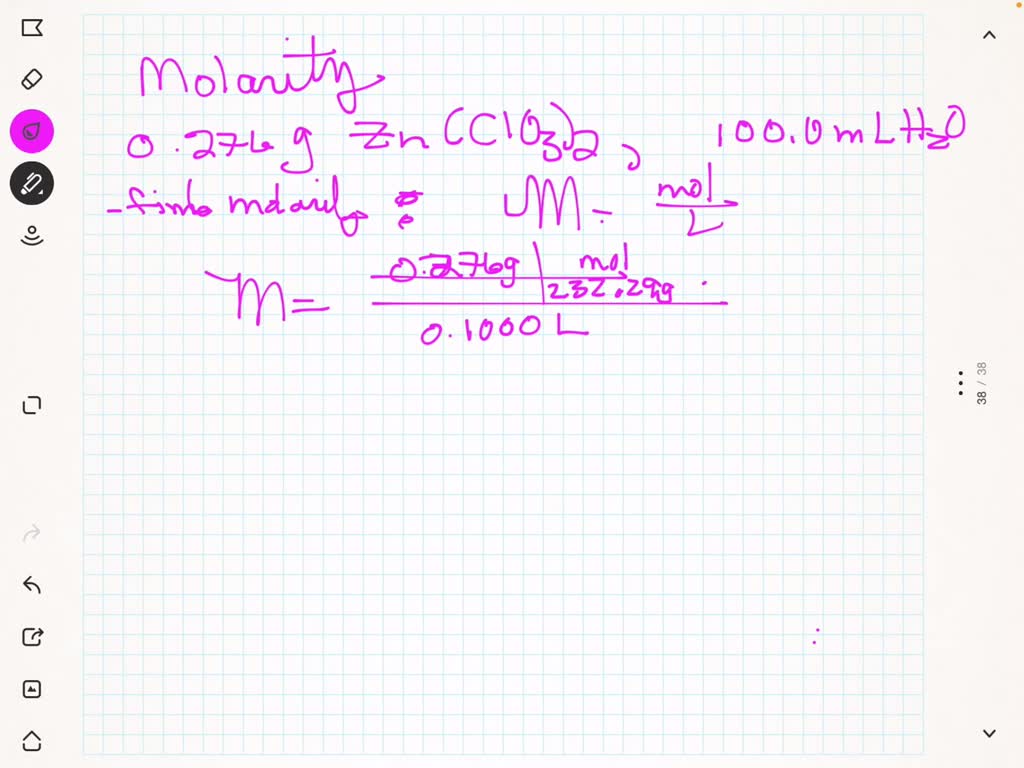 Molarity
0.276g Zn(ClO3)2, 100.0mL H2O
- find molarity : M = mol
L
M = 0.276g | mol
232.29g
0.1000 L
38 / 38